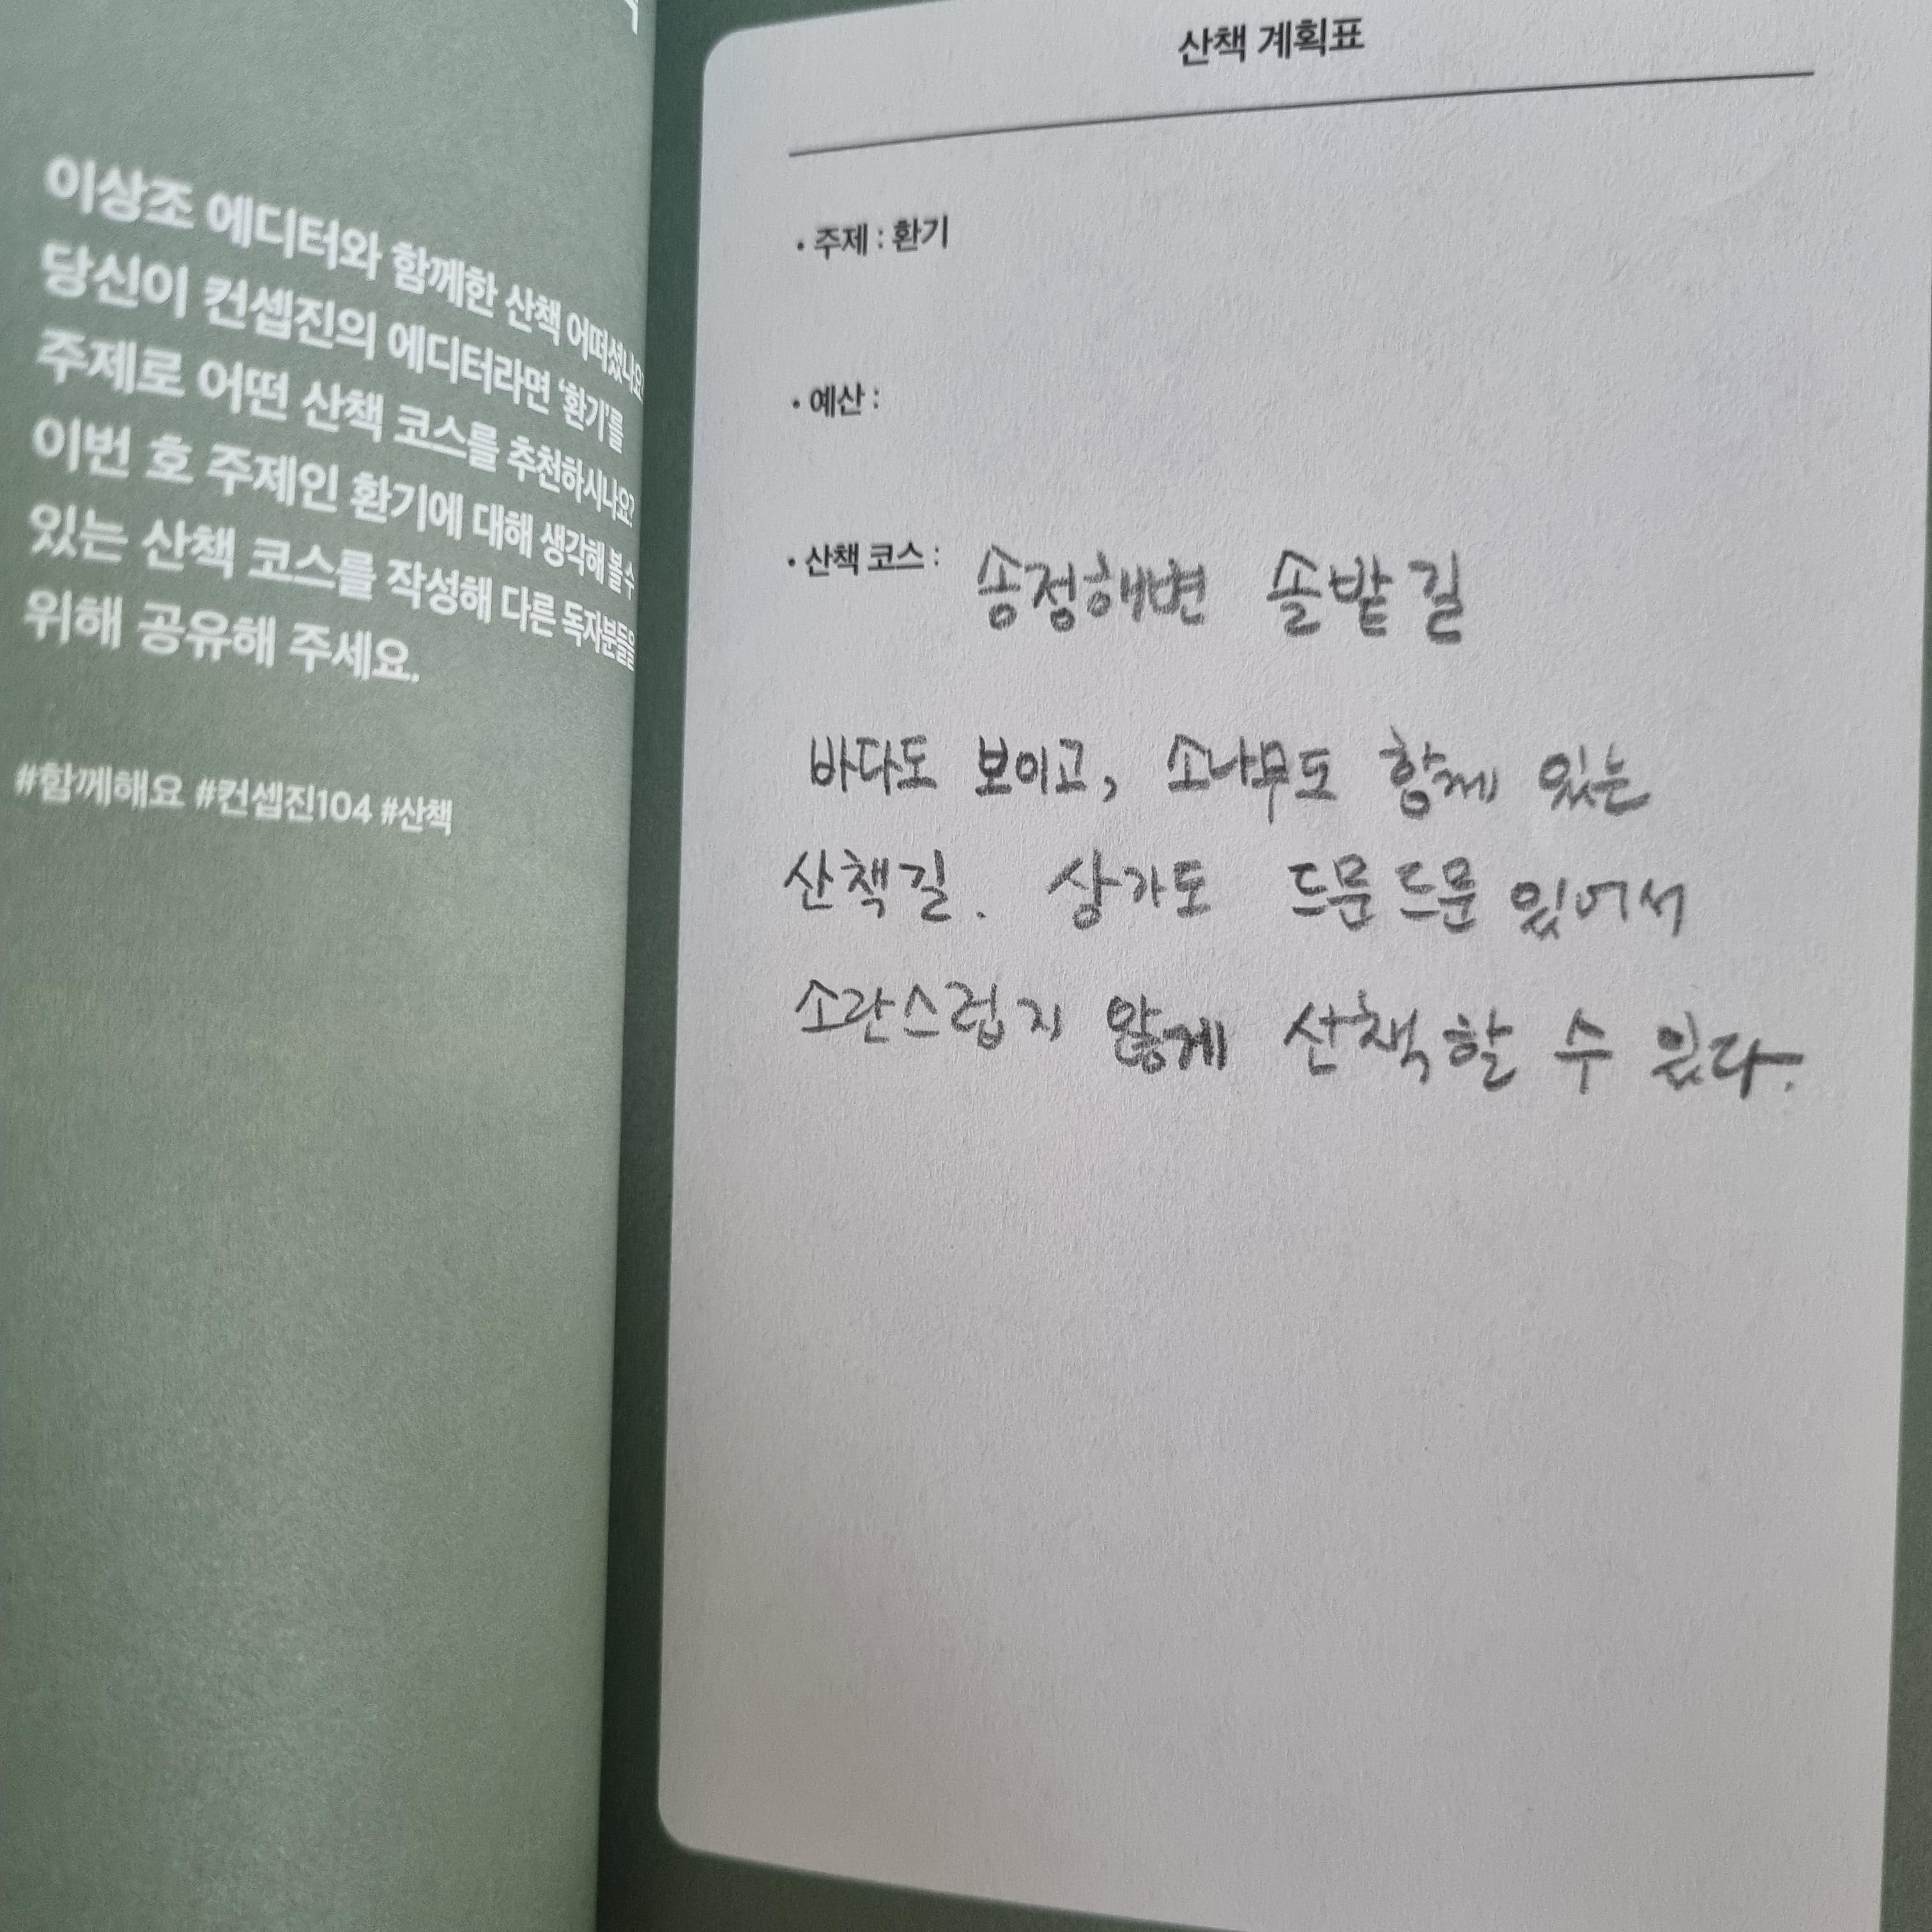 이상조 에디터와 함께한 산책 어떠셨나요?
당신이 컨셉진의 에디터라면 ‘환기’를
주제로 어떤 산책 코스를 추천하시나요?
이번 호 주제인 환기에 대해 생각해 볼 수
있는 산책 코스를 작성해 다른 독자분들을
위해 공유해 주세요.
#함께해요 #컨셉진104 #산책
산책 계획표
• 주제 : 환기
• 예산 :
• 산책 코스 : 송정해변 솔밭길
바다도 보이고, 소나무도 함께 있는
산책길. 상가도 드문드문 있어서
소란스럽지 않게 산책할 수 있다.